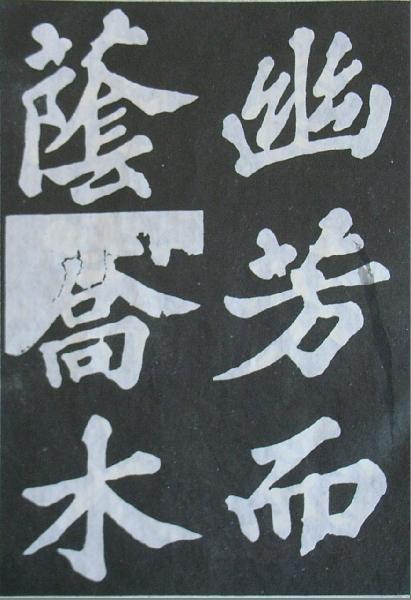 幽芳而
蔭喬木